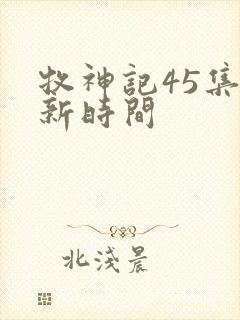 牧神記45集
新時間
北淺晨